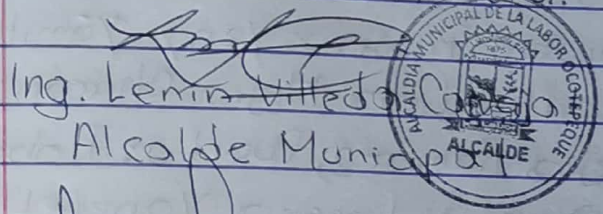 Ing. Lenin Villeda
Alcalde Municipal
ALCALDIA MUNICIPAL DE LA LABOR OCOTEPEQUE
ALCALDE